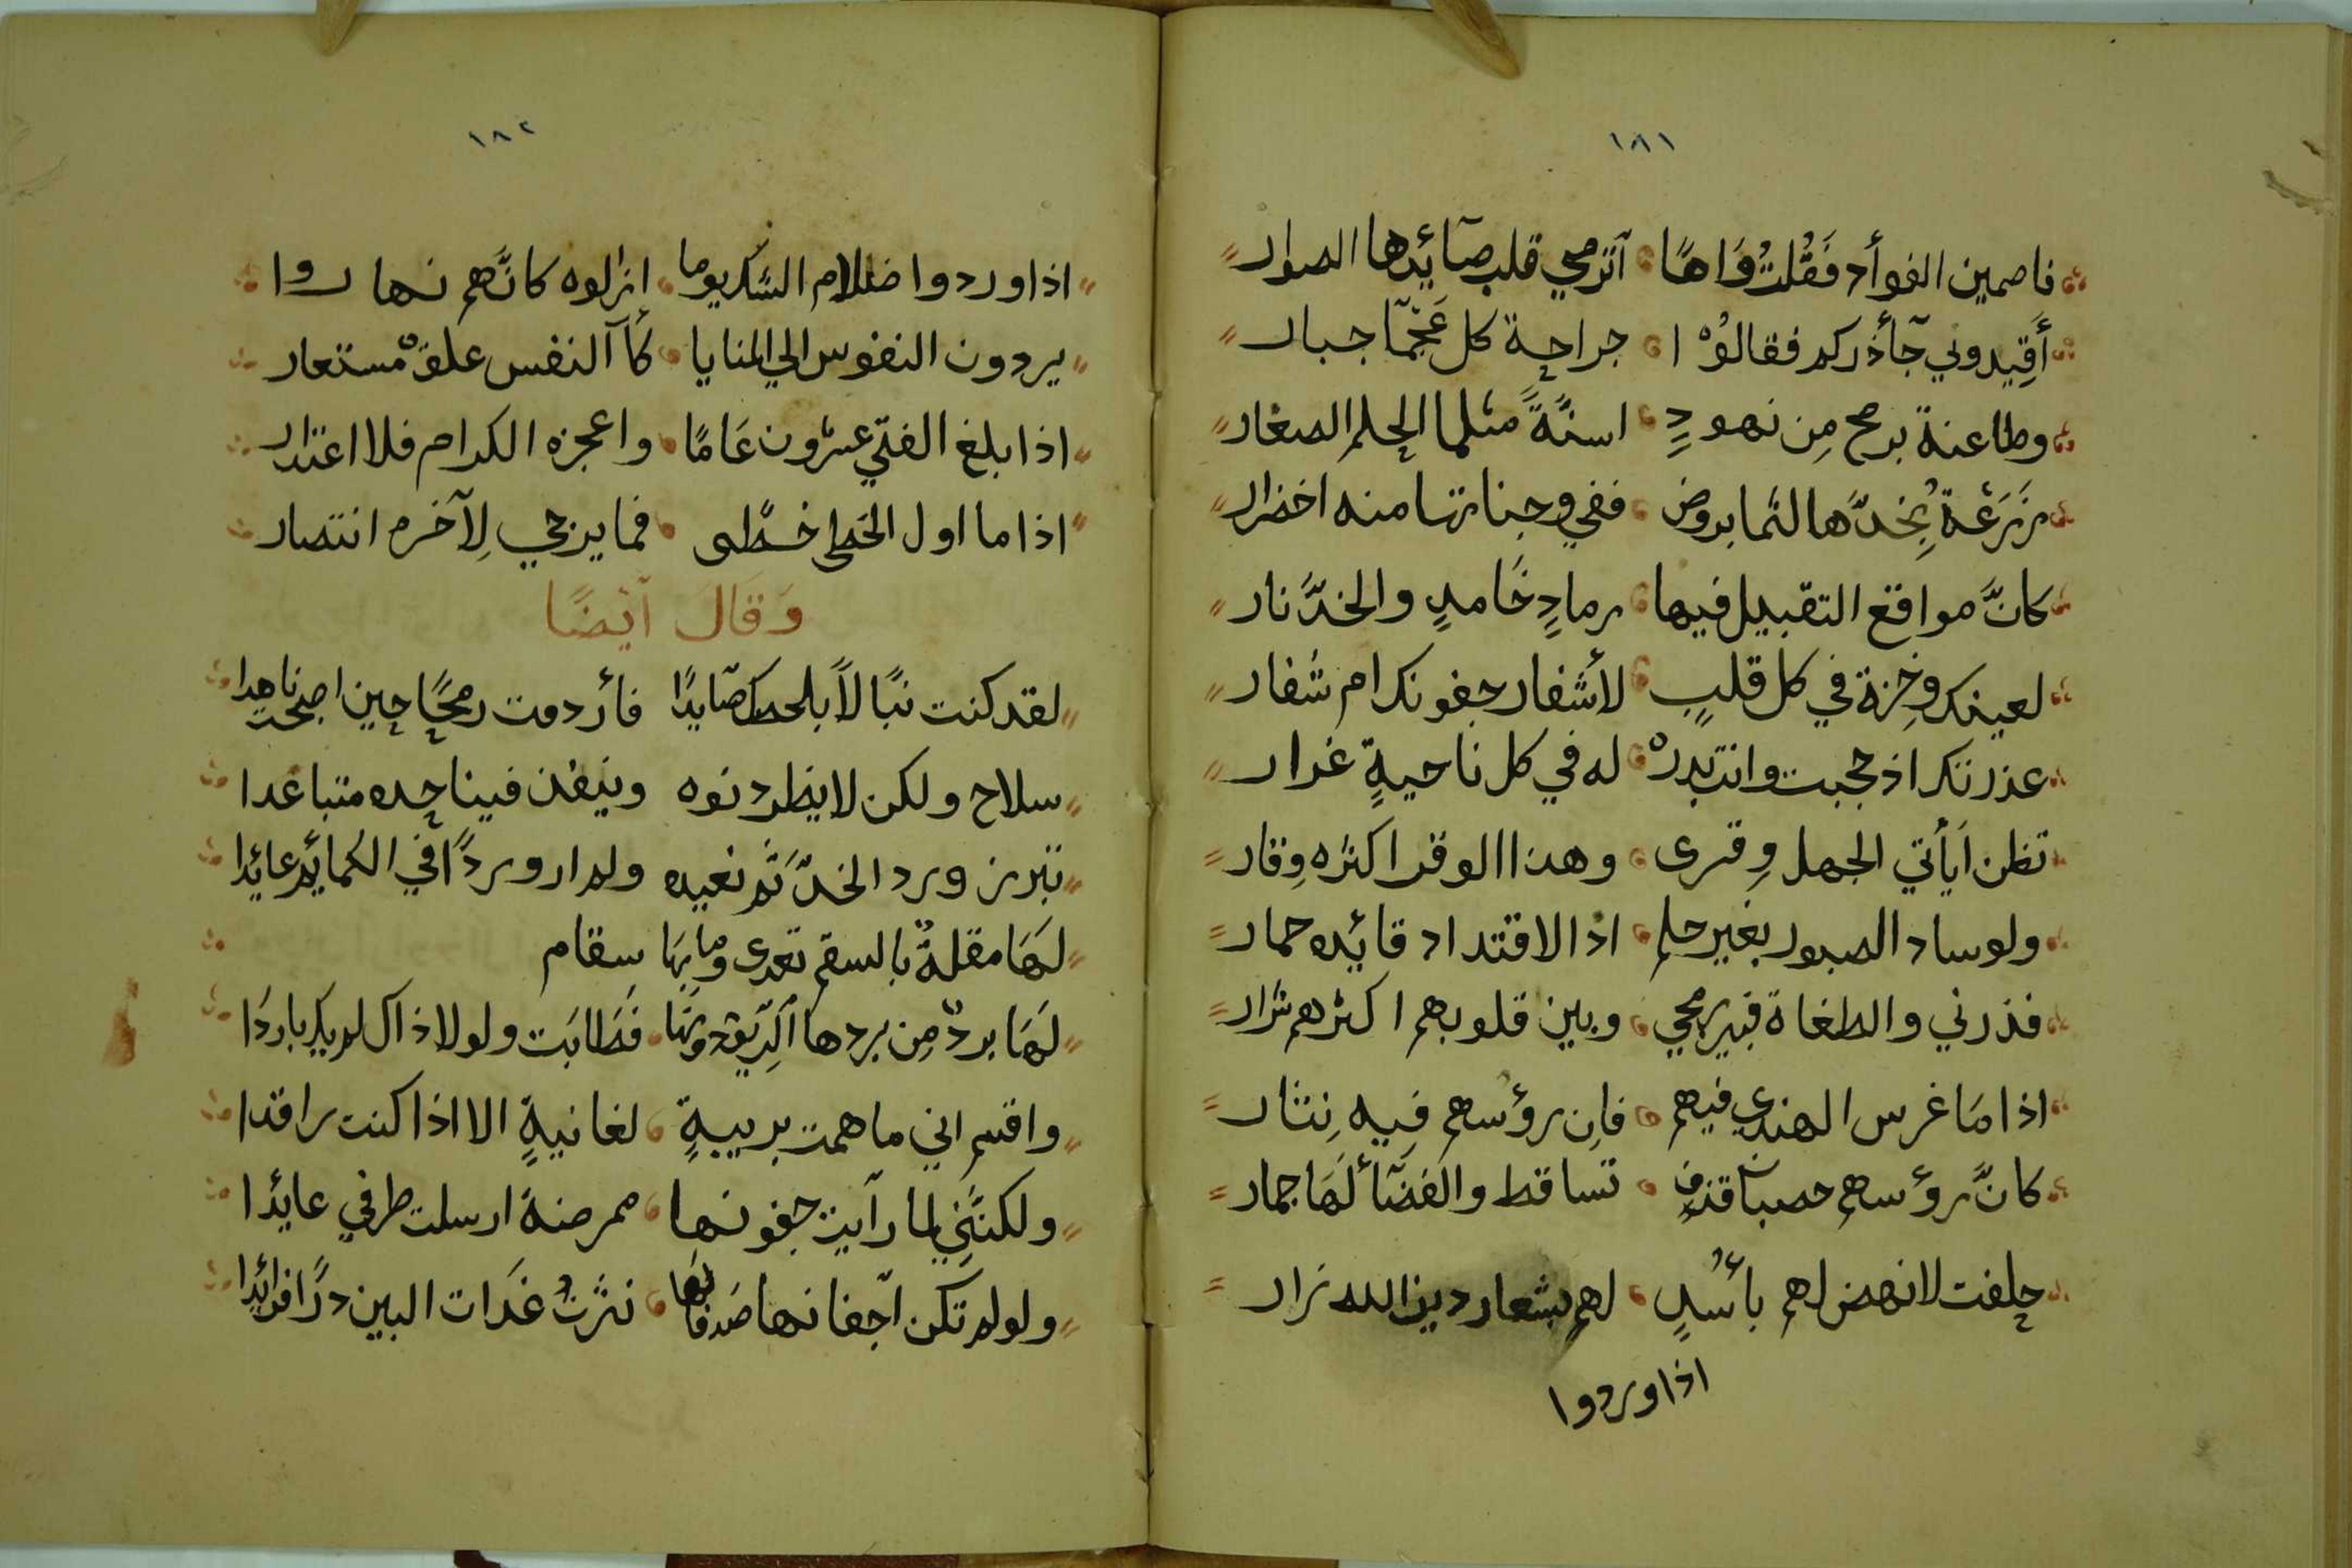 ١٨١
فاصمين الفوأد فَقُلتُ وَاهًا أترمي قلب صآئدها الصوار
أَقِيدوني جآأذركم فقالوُا جراحة كل عَجْمآ جبار
وطاعنة برمح مِن نهودٍ اسنَّةً مثلما الحلم الصغار
زَرَعْة بِخدّها لثما بروض ففي وجناتها منه اخضرار
كانَّ مواقع التقبيل فيها رمادٍ خَامدٍ والخدّ نار
لعينك وخزة في كل قلبٍ لأشفار جفونك ام شفار
عذرتك اذ حجبت وانت بدرْ له في كل ناحيةٍ غرار
تظن اَيأتي الجهل وِقرى وهذا الوقر اكثره وِقار
ولو ساد الصبور بغير حلم اذا الاقتداد قائده حمار
فذرني والطغاة فبين رمحي وبين قلوبهم اكثرهم ثرار
اذا مَا غرس الهندي فيهم فاِن رؤسهم فيه نِثار
كانَّ رؤسهم حصبا قذفٍ تساقط والفضَآأ لَهَا جمار
حلفت لانهض لهم بأسُدٍ لهم بشعار دين الله نزار
اذا وردوا
١٨٢
اذا وردوا ضلام الشك يوما ازالوه كانَّهم نهاروا
يردون النفوس الي المنايا كأآ النفس علقٌ مستعار
اذا بلغ الفتي عشرون عَامًا واعجزه الكرام فلا اعتذار
اذا ما اول الخطى خطَّى فما يرجي لِآخره انتصار
وَقَالَ آيْضًا
لقد كنت نبًالاً بلحظك صآيدًا فأردمت رمحًا حين اصبحت ناهدا
سلاح ولكن لا يطرد نوه وينفذ فينا حده متباعدا
تبرز ورد الخدّ ثَم نعيده ولم ار وردًا في الكمائم عائدا
لَهَا مقلةٌ بالسقم تعدى وما بِهَا سقام
لَهَا بردٌ مِن بردها الرِّيق دونَهَا فَطَابَت ولولا ذاك لم يك باردَا
واقسم اني ما هممت بريبةٍ لغانيةٍ الا اذا كنت راقدا
ولكنَّنِي لما رآيت جفونها ممرضة ارسلت طرفي عايدًا
ولو لم تكن آجفانها صَدفا لَها نثرتُ غَدَات البين درًا فرائدا